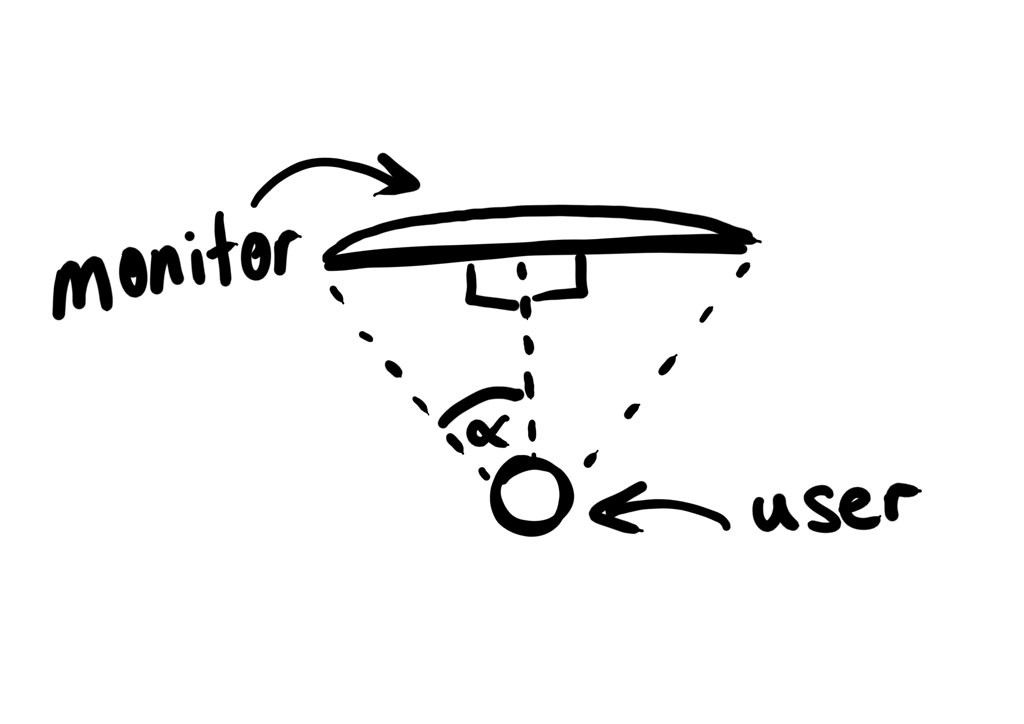 monitor
α
user